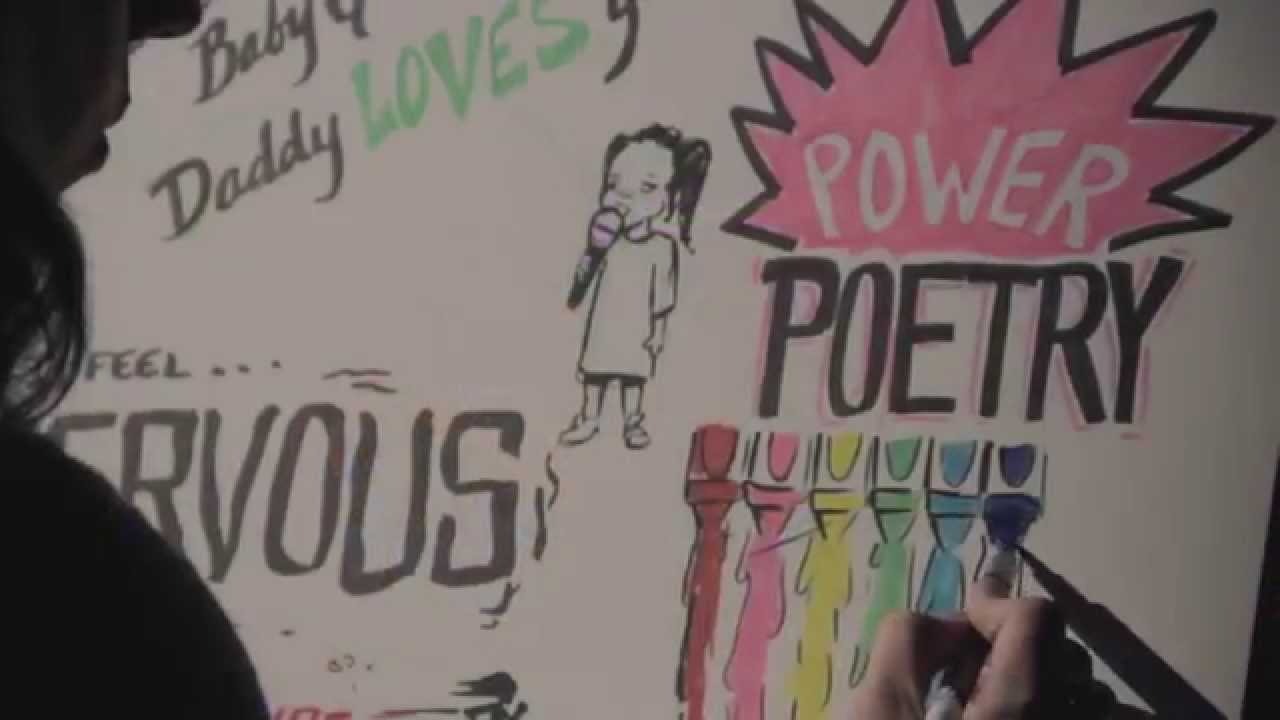 Baby
Daddy LOVES y
FEEL ...
ERVOUS
POWER
POETRY